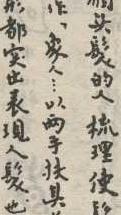 頭髮的人梳理使
作「象人…以兩手扶其
形都突出表現人髮也